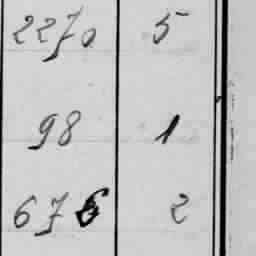 2270 5
98 1
676 2